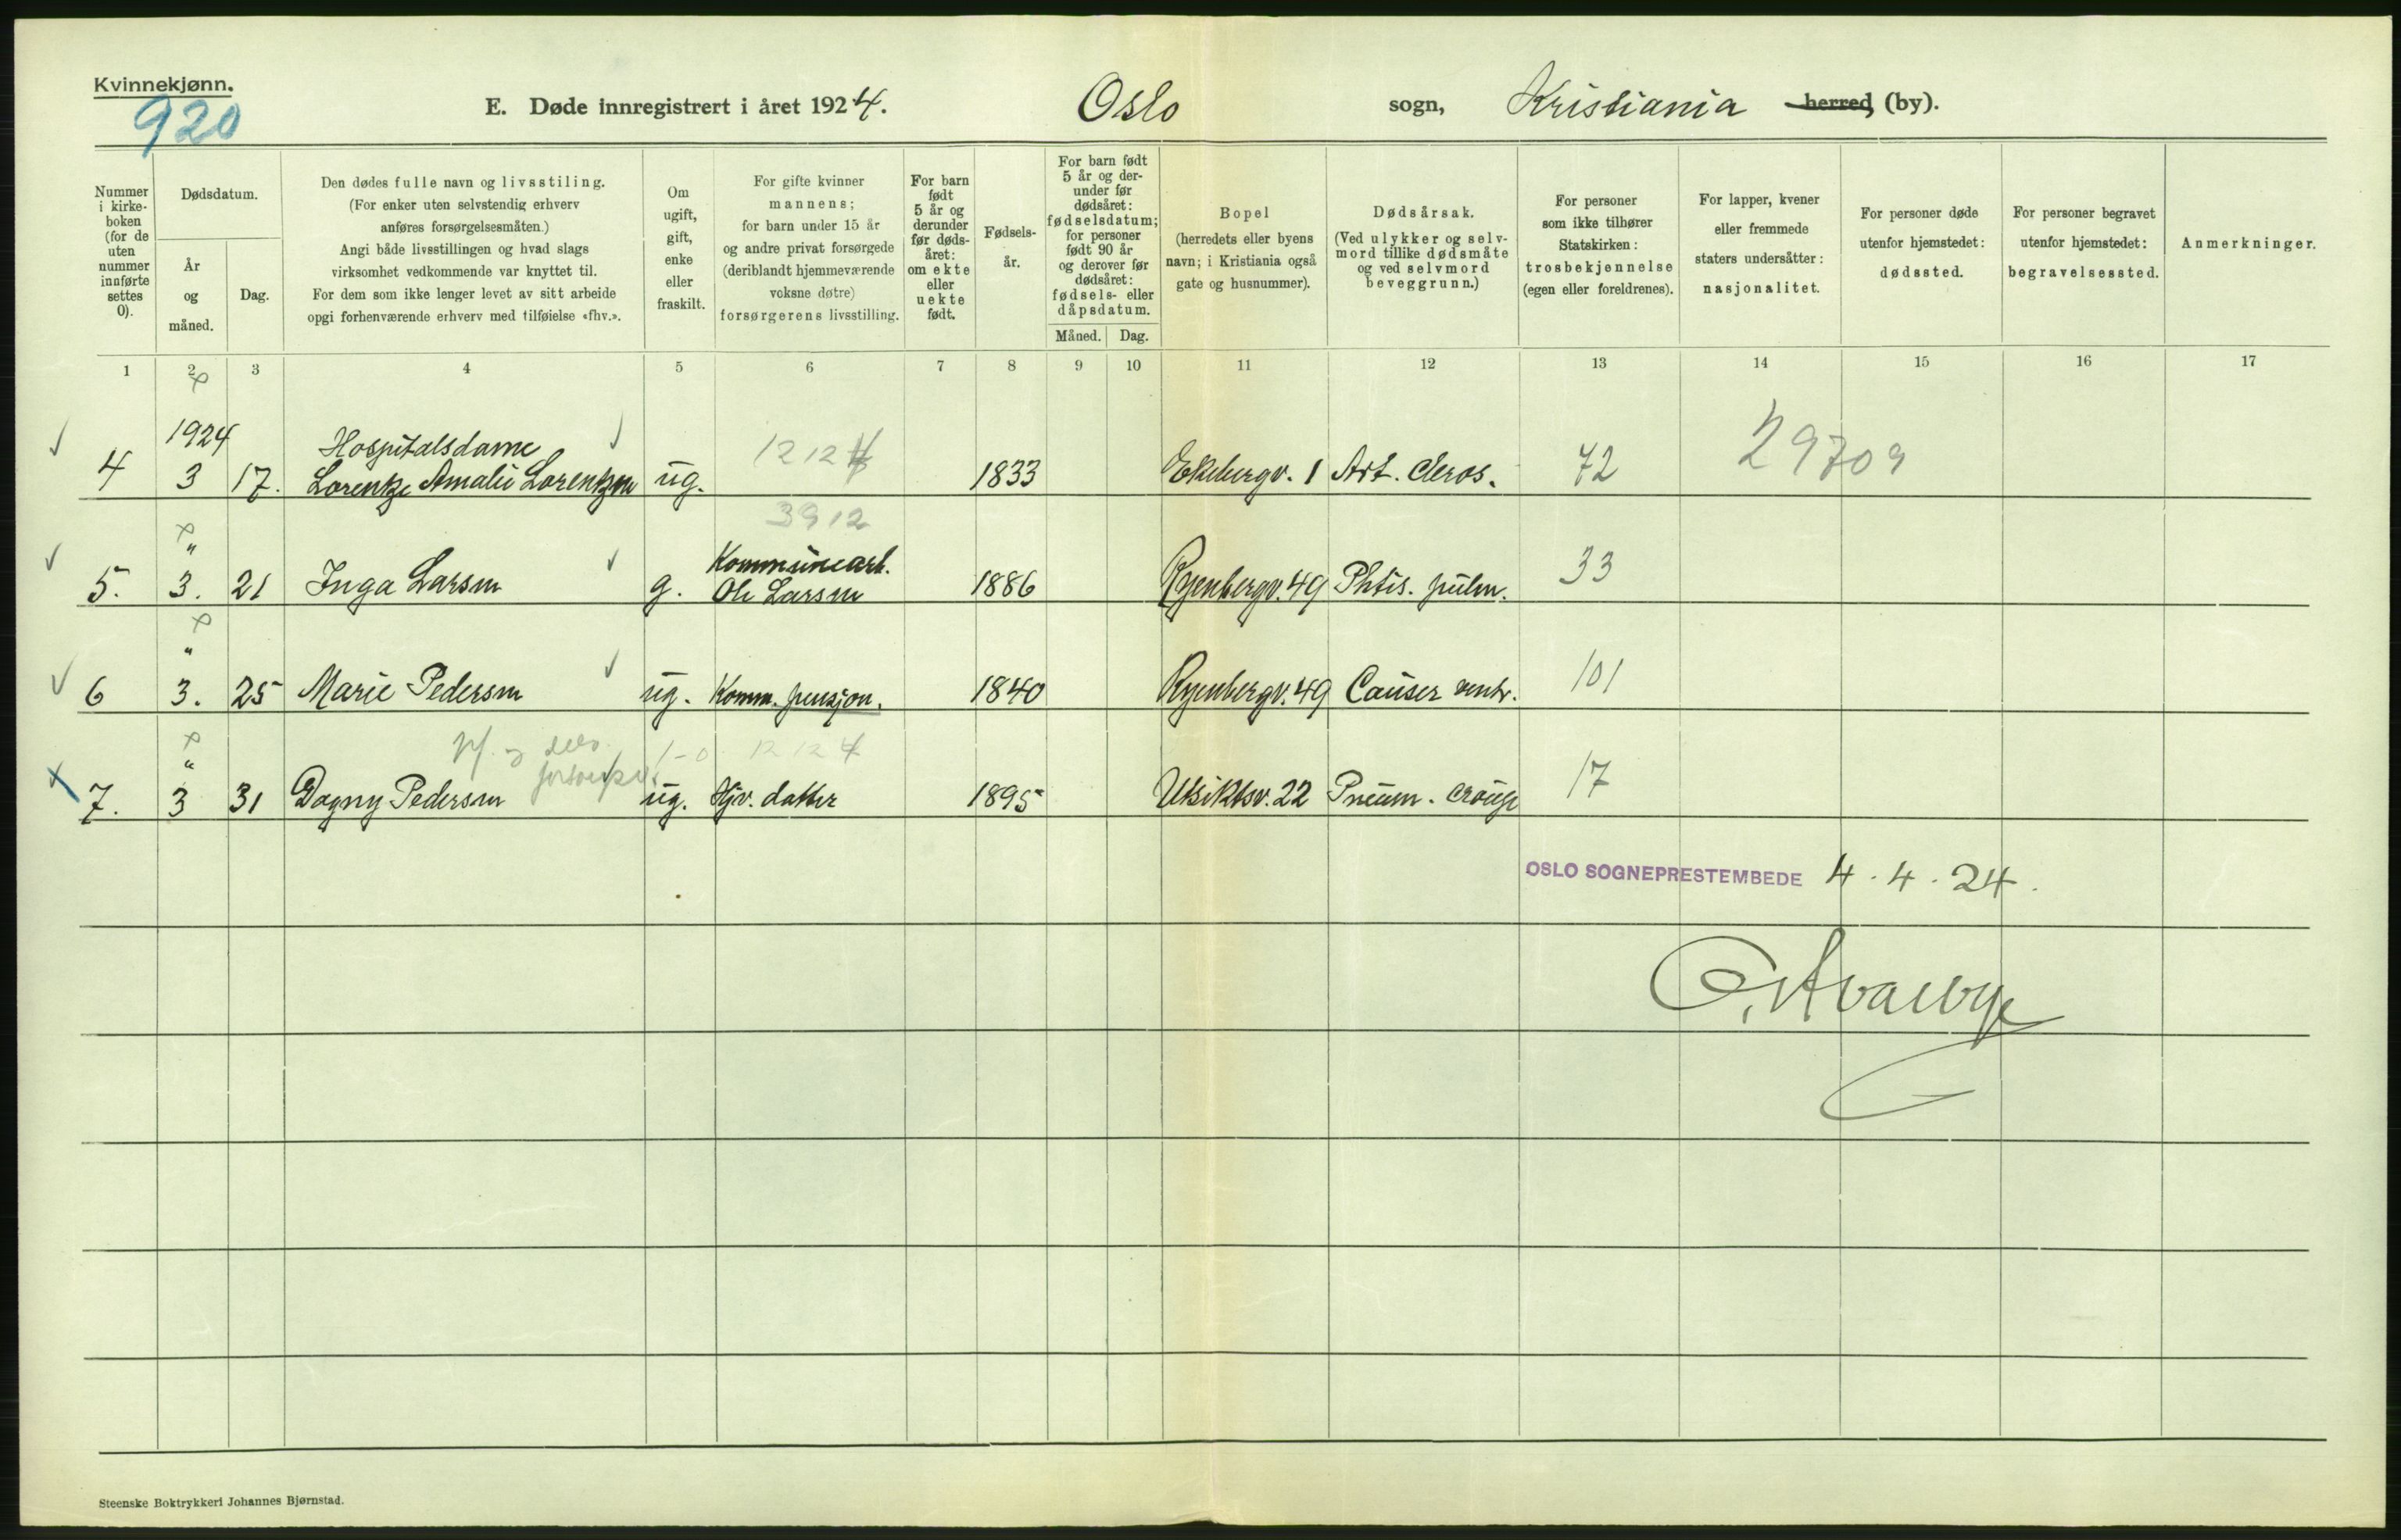 Kvinnekjønn.
920
E. Døde innregistrert i året 1924. Oslo sogn, Kristiania herred, (by).
Nummer i kirke- boken (for de uten nummer innførte settes 0).
Dødsdatum.
År og måned.
Dag.
Den dødes fulle navn og livsstiling.
(For enker uten selvstendig erhverv
anføres forsørgelsesmåten.)
Angi både livsstillingen og hvad slags
virksomhet vedkommende var knyttet til.
For dem som ikke lenger levet av sitt arbeide
opgi forhenværende erhverv med tilføielse «fhv.».
Om
ugift,
gift,
enke
eller
fraskilt.
For gifte kvinner
mannens;
for barn under 15 år
og andre privat forsørgede
(deriblandt hjemmeværende
voksne døtre)
forsørgerens livsstilling.
For barn
født
5 år og
derunder
før døds-
året:
om ekte
eller
uekte
født.
Fødsels-
år.
For barn født
5 år og der-
under før
dødsåret:
fødselsdatum;
for personer
født 90 år
og derover før
dødsåret:
fødsels- eller
dåpsdatum.
Måned. Dag.
Bopel
(herredets eller byens
navn; i Kristiania også
gate og husnummer).
Dødsårsak.
(Ved ulykker og selv-
mord tillike dødsmåte
og ved selvmord
beveggrunn.)
For personer
som ikke tilhører
Statskirken:
trosbekjennelse
(egen eller foreldrenes).
For lapper, kvener
eller fremmede
staters undersåtter:
nasjonalitet.
For personer døde
utenfor hjemstedet:
dødssted.
For personer begravet
utenfor hjemstedet:
begravelsessted.
Anmerkninger.
1 2 3 4 5 6 7 8 9 10 11 12 13 14 15 16 17
1924 Hospitalsdame 1212
4 3 17. Lorentze Amalie Lorentzen ug. 1833 Ekebergv. 1 Art. cleros. 72 29709
3912
" Kommunearb.
5. 3. 21 Inga Larsen g. Ole Larsen 1886 Ryenbergv. 49 Phtis. pulm. 33
"
6 3. 25 Marie Pedersen ug. Komm. pensjon. 1840 Ryenbergv. 49 Cancer ventr. 101
" 1-0 12 12 4
7. 3 31 Dagny Pedersen ug. Hjv. datter 1895 Utsiktsv. 22 Pneum. croup 17
OSLO SOGNEPRESTEMBEDE 4.4.24.
Steenske Boktrykkeri Johannes Bjørnstad.